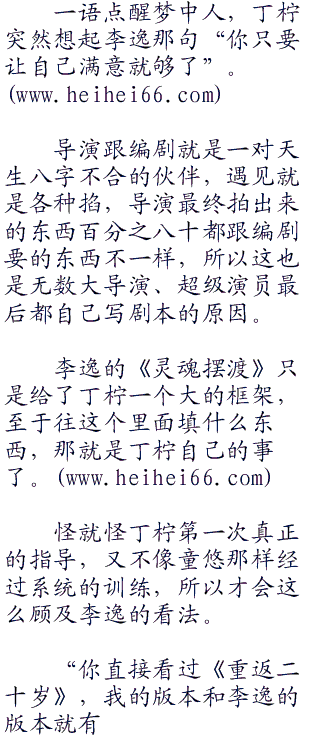 一语点醒梦中人，丁柠
突然想起李逸那句“你只要
让自己满意就够了”。
(www.heihei66.com)
导演跟编剧就是一对天
生八字不合的伙伴，遇见就
是各种掐，导演最终拍出来
的东西百分之八十都跟编剧
要的东西不一样，所以这也
是无数大导演、超级演员最
后都自己写剧本的原因。
李逸的《灵魂摆渡》只
是给了丁柠一个大的框架，
至于往这个里面填什么东
西，那就是丁柠自己的事
了。(www.heihei66.com)
怪就怪丁柠第一次真正
的指导，又不像童悠那样经
过系统的训练，所以才会这
么顾及李逸的看法。
“你直接看过《重返二
十岁》，我的版本和李逸的
版本就有